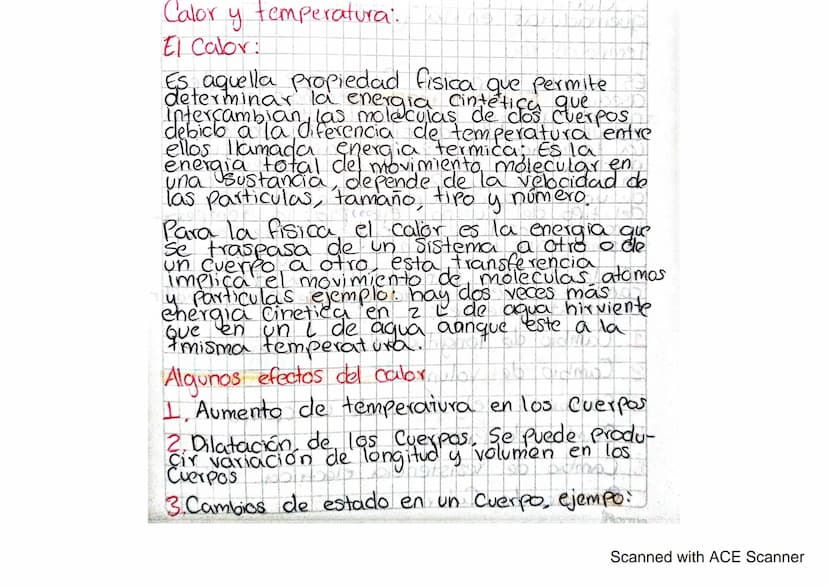 Calor y temperatura:.
El Calor:
Es aquella propiedad fisica que permite
determinar la energia cintética que
intercambian las moléculas de dos cuerpos
debido a la diferencia de temperatura entre
ellos llamada energia termica; Es la
energia total del movimiento molecular en
una sustancia, depende de la velocidad de
las particulas, tamaño, tipo y número.
Para la fisica el calor es la energia que
se traspasa de un sistema a otro o de
un cuerpo a otro, esta transferencia
implica el movimiento de moléculas, atomos
y particulas ejemplo: hay dos veces más
energia cinetica en 2 L de agua hirviente
que en un L de agua aunque este a la
misma temperatura.
Algunos efectos del calor
1. Aumento de temperatura en los cuerpos
2. Dilatación de los cuerpos. Se puede produ-
cir variación de longitud y volumen en los
cuerpos
3. Cambios de estado en un cuerpo, ejempo:
Scanned with ACE Scanner